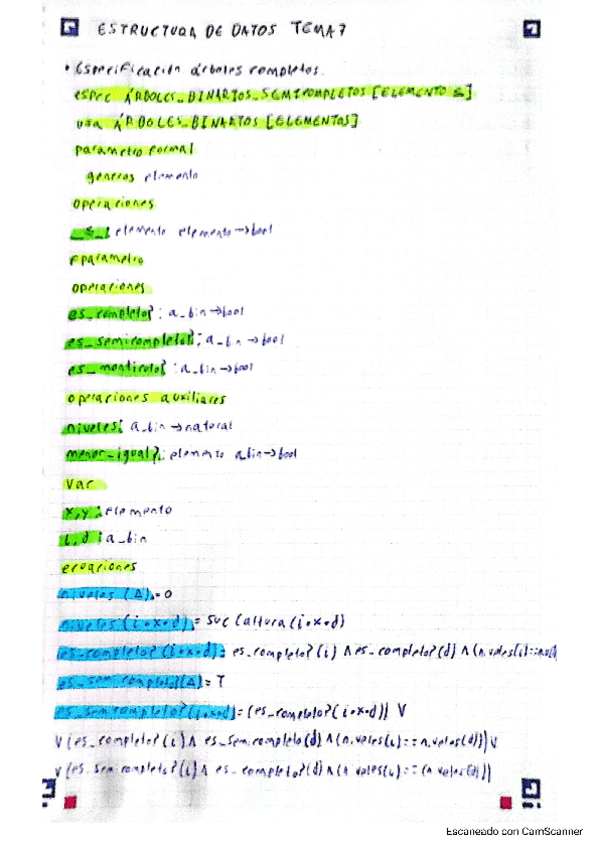 ESTRUCTURA DE DATOS TEMA 7
• Especificación árboles completos.
espec ÁRBOLES_BINARIOS_SEMICOMPLETOS [ELEMENTO ≤]
usa ÁRBOLES_BINARIOS [ELEMENTOS]
parametro formal
generos elemento
operaciones
_≤_: elemento elemento → bool
Fparametro
operaciones
es_completo?: a_bin → bool
es_semicompleto?: a_bin → bool
es_monticulo?: a_bin → bool
operaciones auxiliares
niveles: a_bin → natural
menor_igual?: elemento a_bin → bool
Var
x,y: elemento
i,d: a_bin
ecuaciones
niveles (Δ) = 0
niveles (i•x•d) = suc (altura (i•x•d)
es_completo? (i•x•d) = es_completo? (i) ∧ es_completo? (d) ∧ (niveles(i)==
es_semicompleto? (Δ) = T
es_semicompleto? (i•x•d) = (es_completo? (i•x•d)) V
V (es_completo? (i) ∧ es_semicompleto (d) ∧ (niveles(i) == niveles(d))) V
V (es_semicompleto? (i) ∧ es_completo? (d) ∧ (niveles(i) == (niveles(d)))
Escaneado con CamScanner